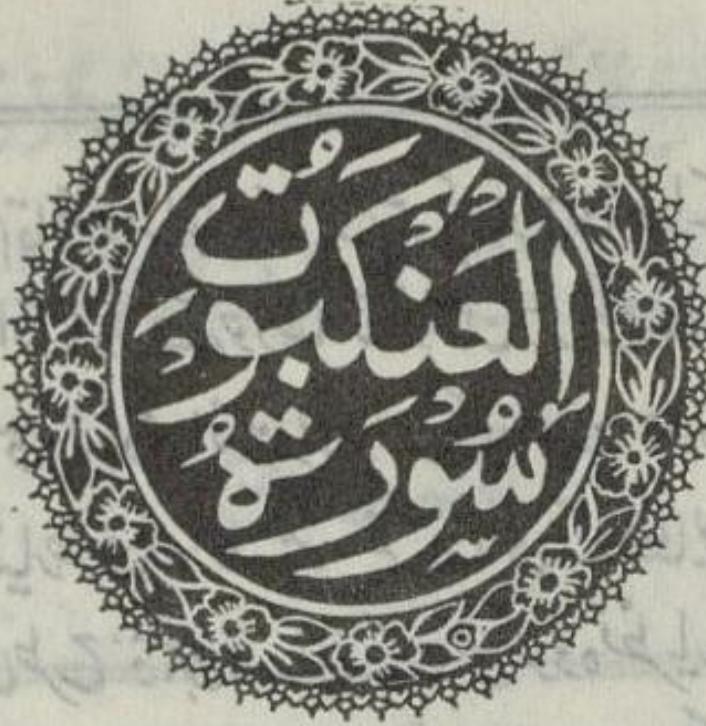 سُورَةُ
العَنكَبُوت